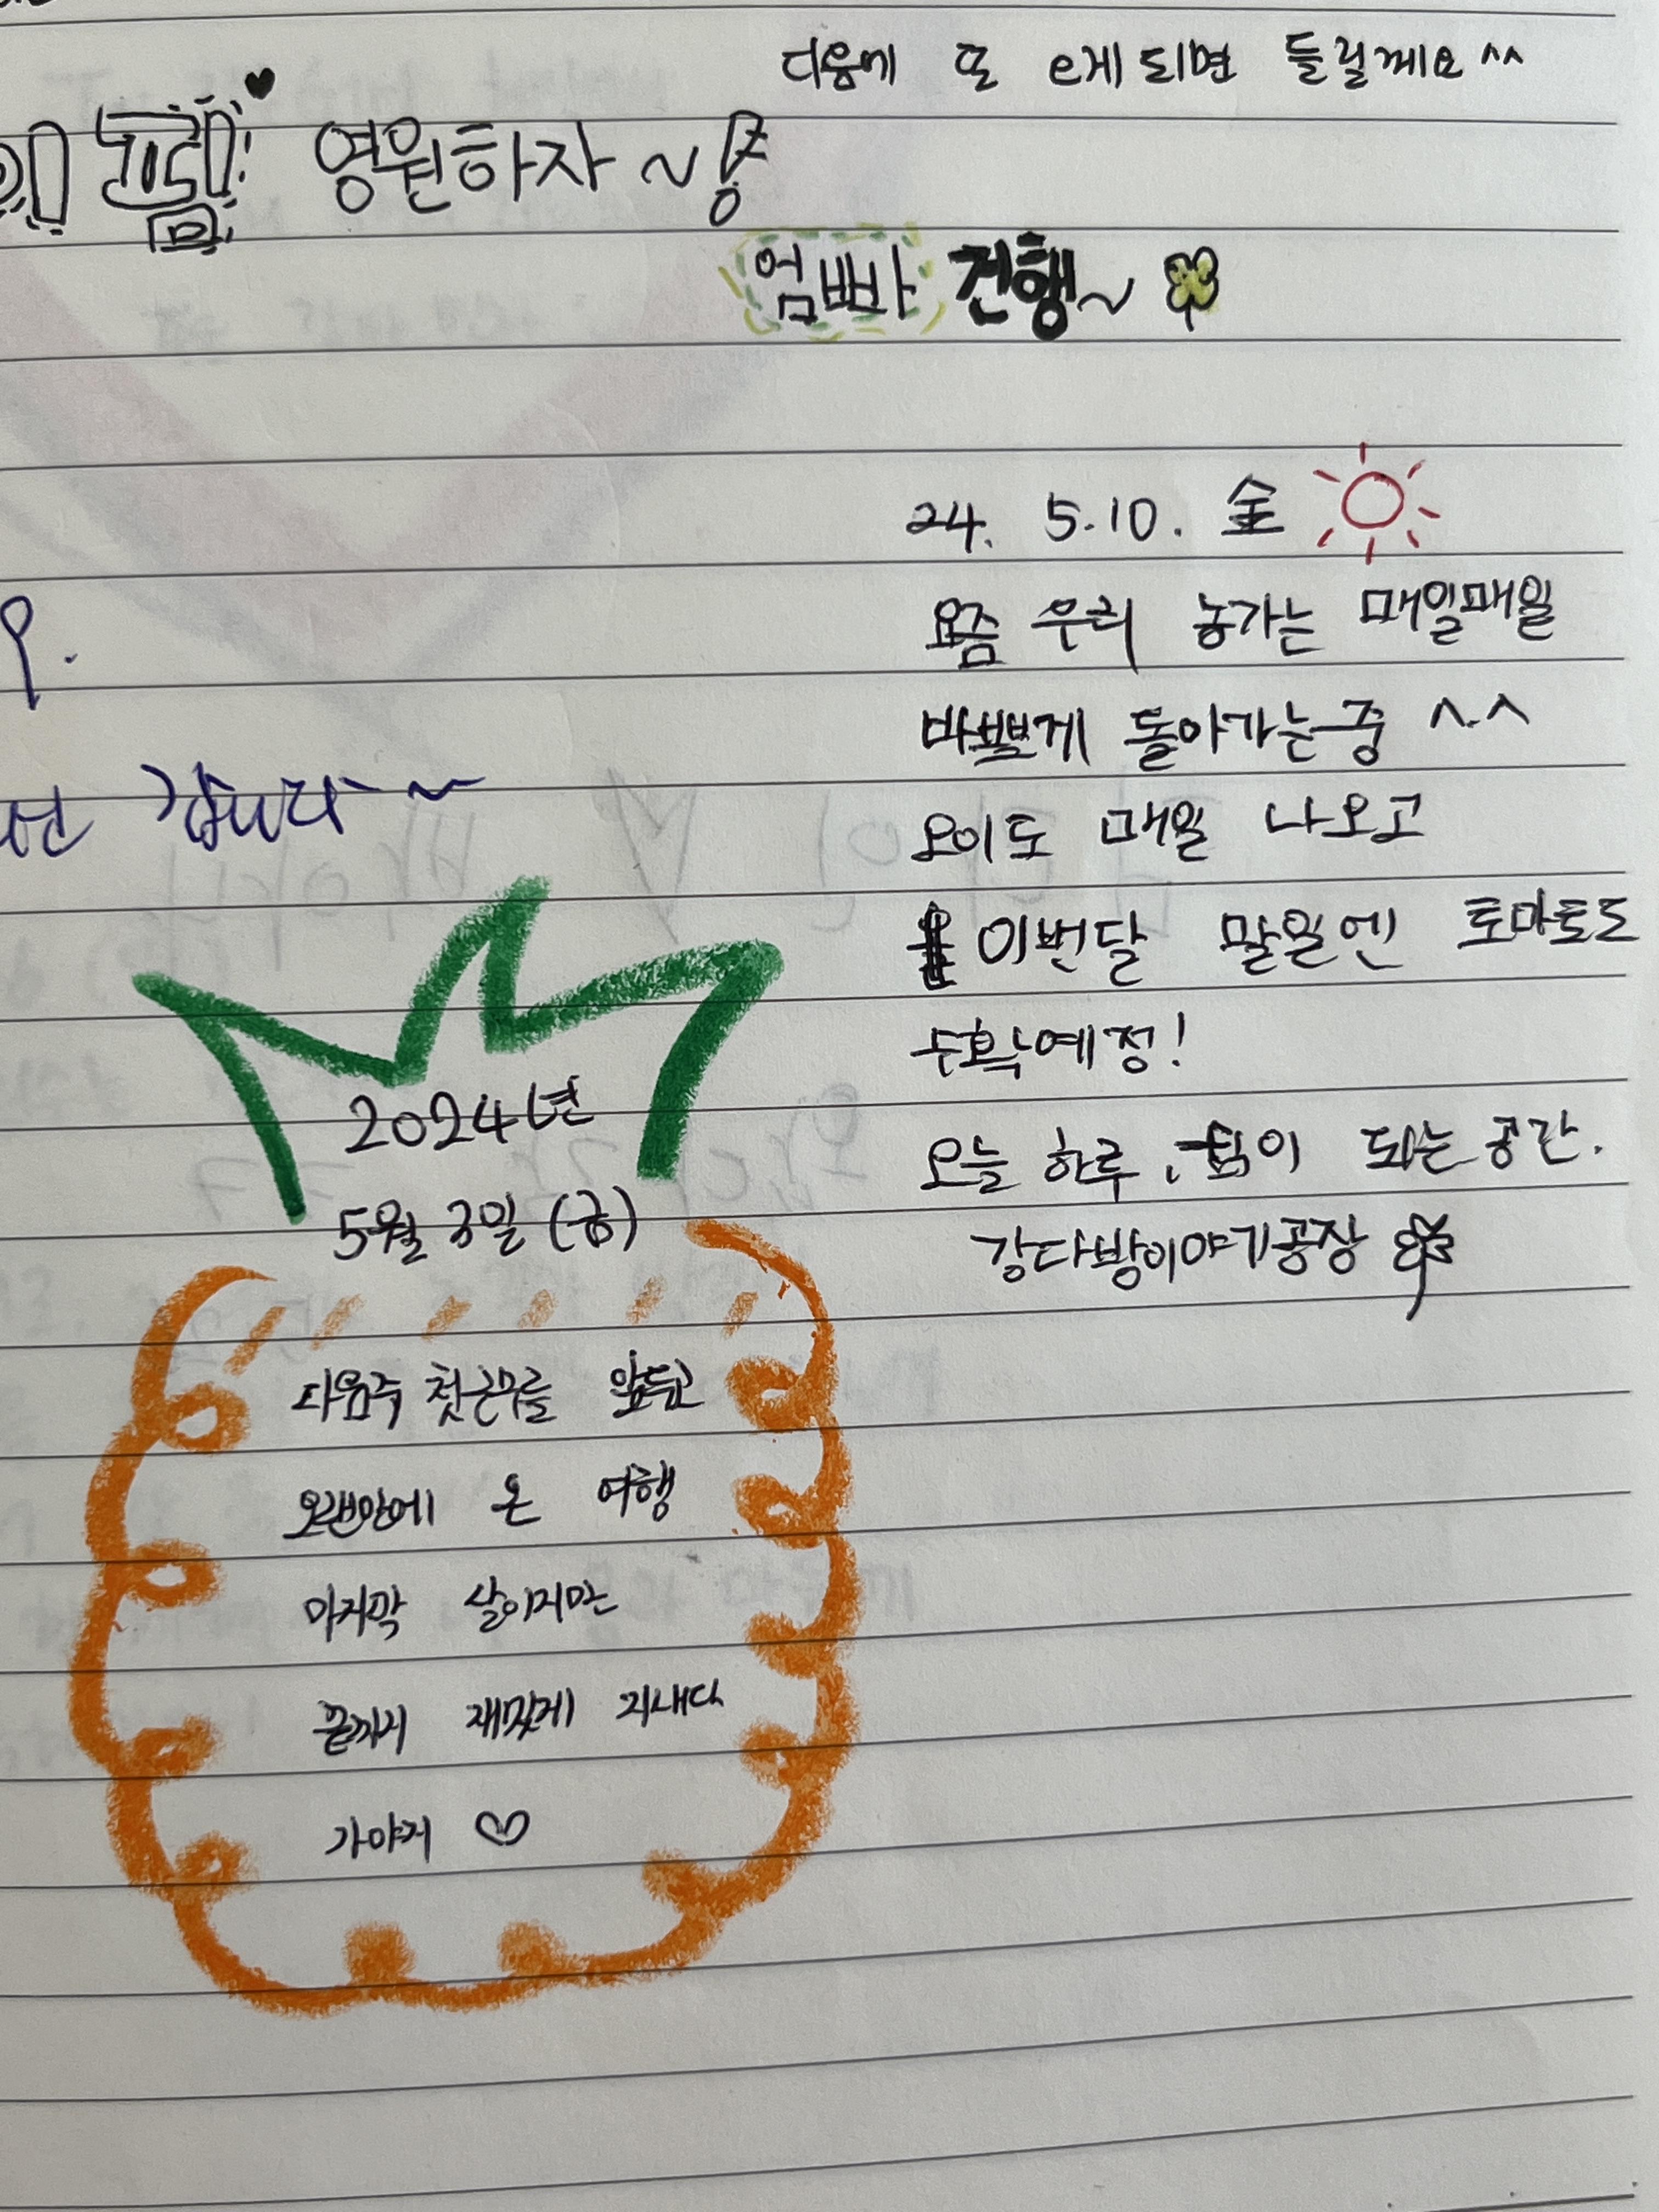 다음에 또 오게되면 들릴게요^^
영원하자~
엄빠 건행~
24. 5.10. 金
요즘 우리 농가는 매일매일
바쁘게 돌아가는중 ^.^
오이도 매일 나오고
이번달 말일엔 토마토도
수확예정!
오늘 하루, 쉼이 되는 공간.
강다방이야기공장
갑니다~
2024년
5월 3일 (금)
다음주 첫근무를 앞두고
오랜만에 온 여행
마지막 날이지만
끝까지 재밌게 지내다
가야지 ♡